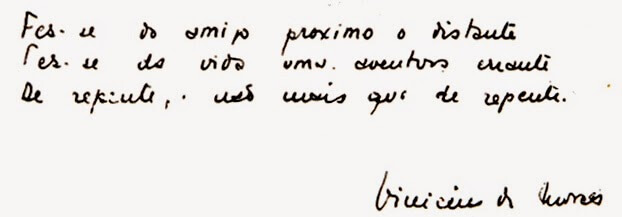 Fez-se do amigo proximo o distante
Fez-se da vida uma aventura errante
De repente, não mais que de repente.
Vinicius de Moraes